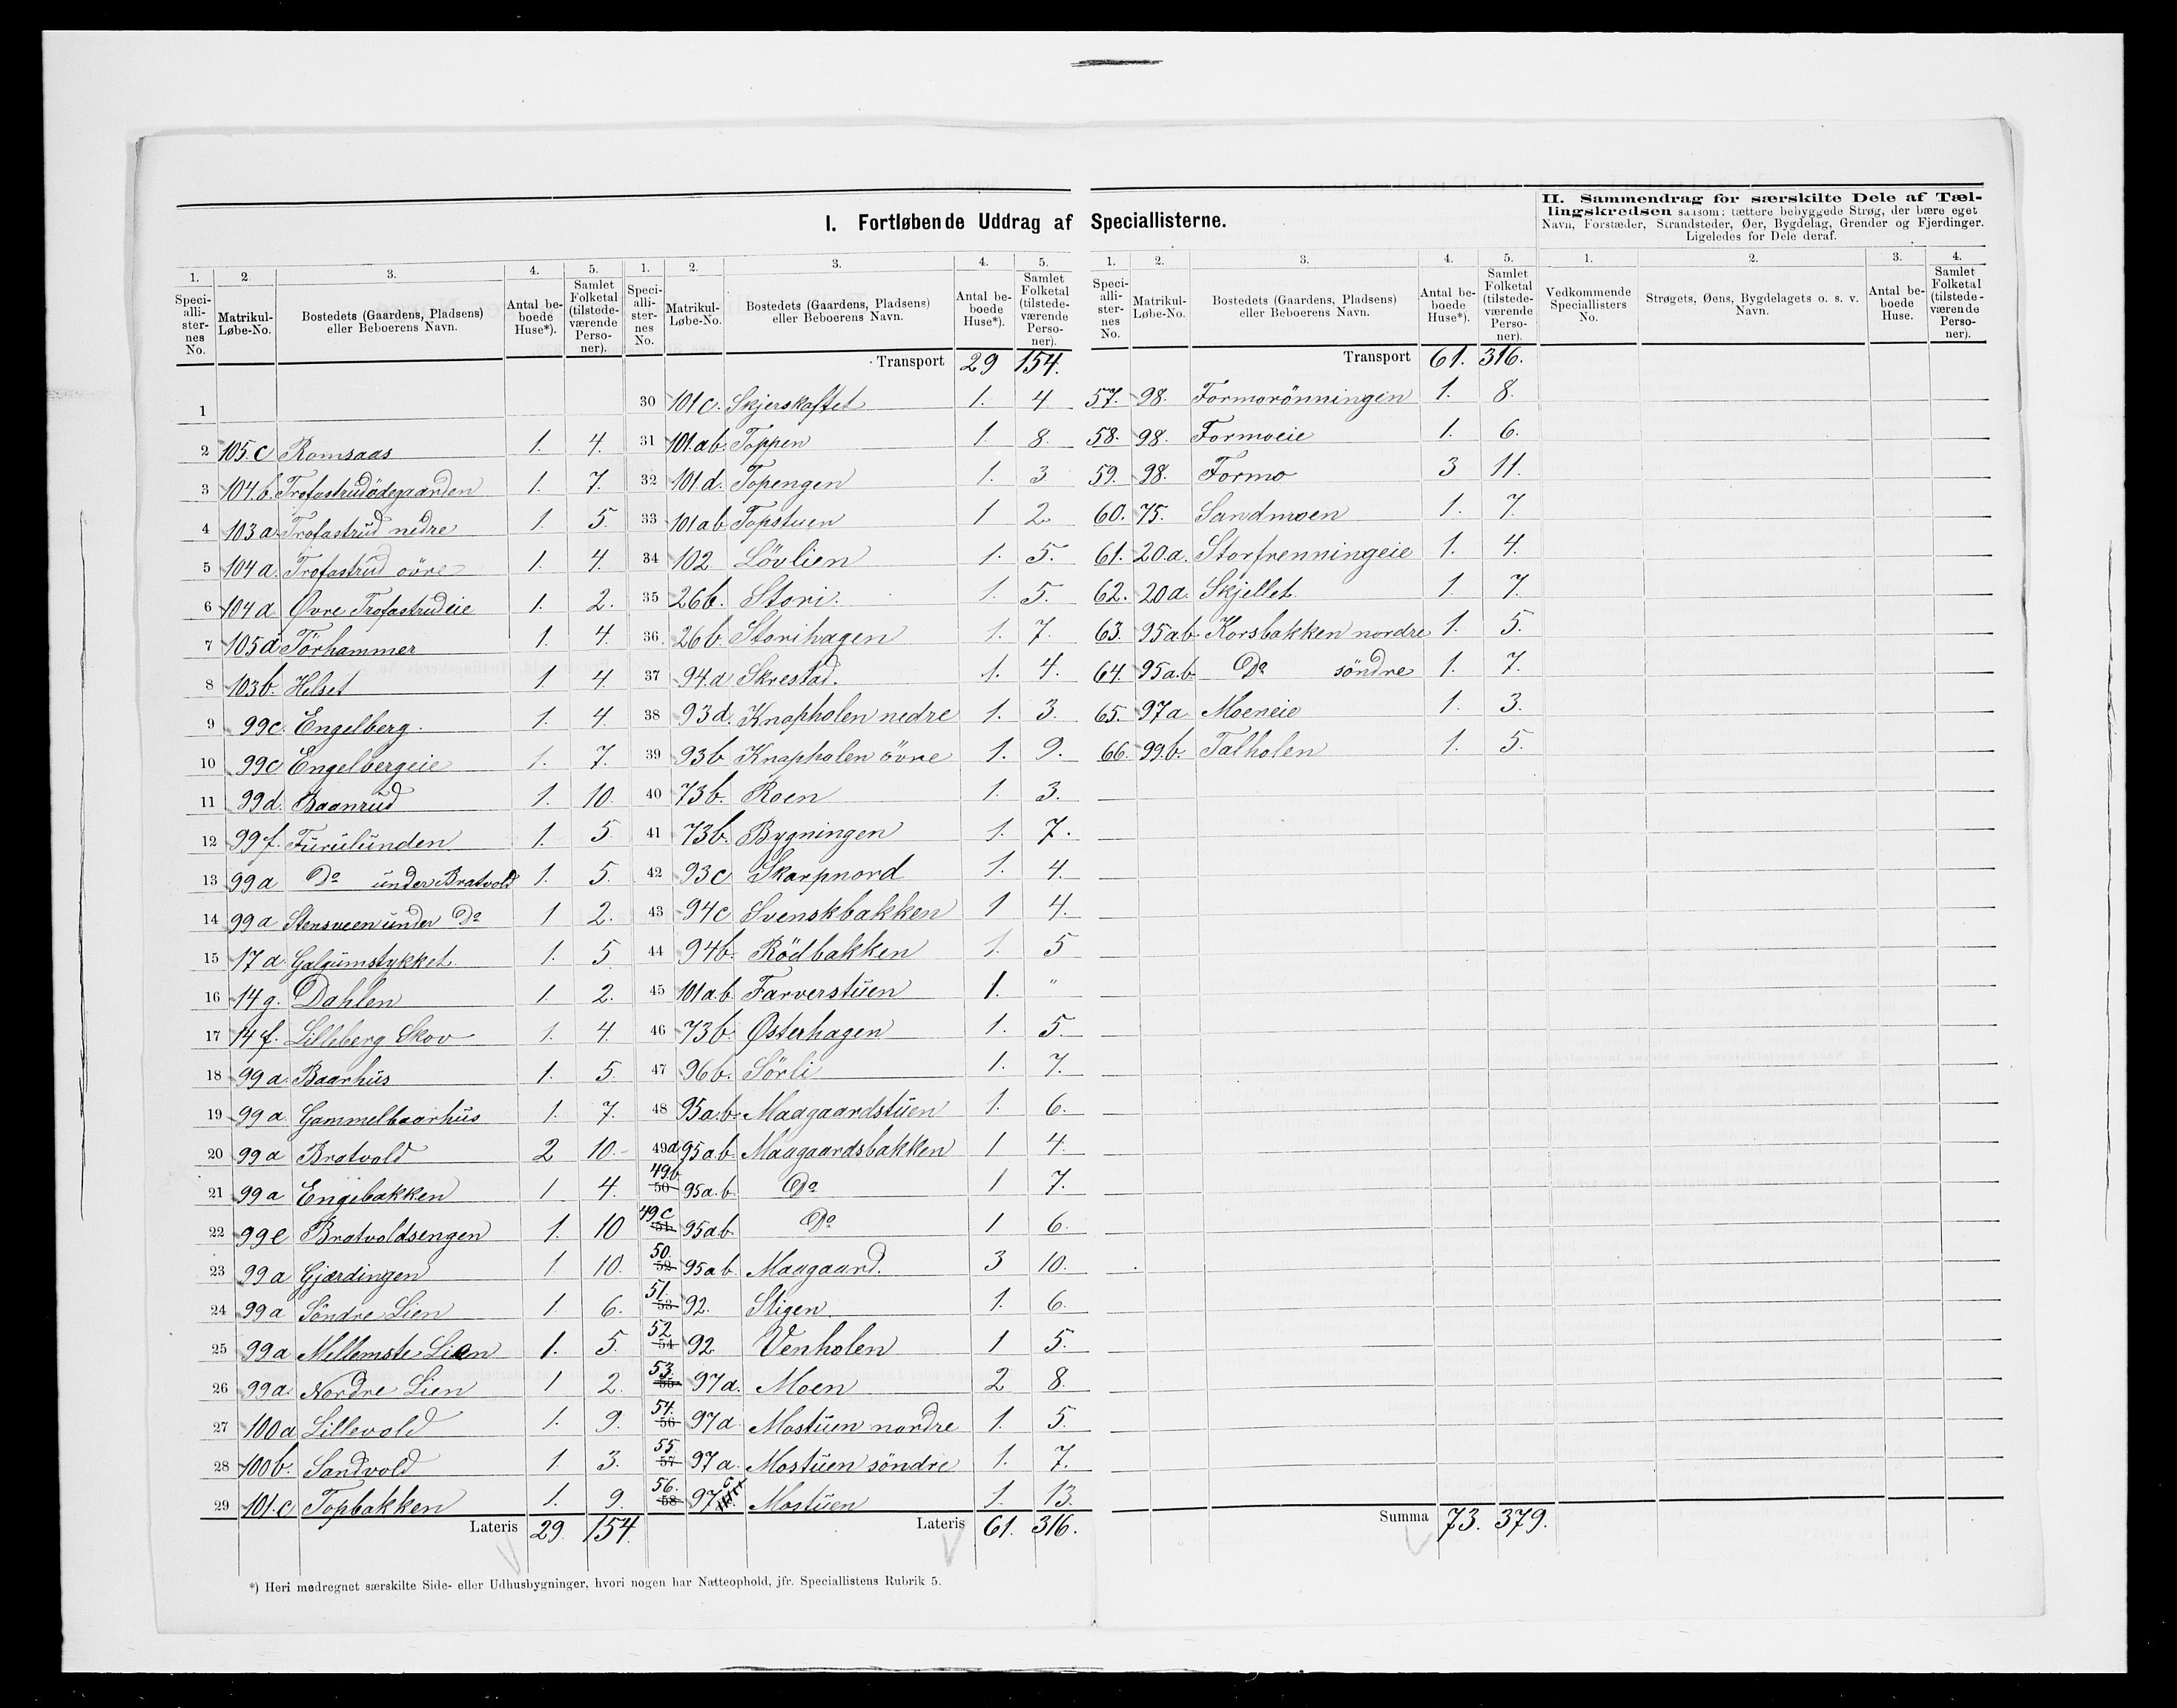 I. Fortløbende Uddrag af Speciallisterne.
II. Sammendrag for særskilte Dele af Tæl-
lingskredsen saasom: tættere bebyggede Strøg, der bære eget
Navn, Forstæder, Strandsteder, Øer, Bygdelag, Grender og Fjerdinger.
Ligeledes for Dele deraf.
1. 2. 3. 4. 5.
Speci-alli-ster-nes No. Matrikul-Løbe-No. Bostedets (Gaardens, Pladsens) eller Beboerens Navn. Antal be-boede Huse*). Samlet Folketal (tilstede-værende Perso-ner).
1
2 105.c Romsaas 1. 4.
3 104.b. Trofastrudödegaarden 1. 7.
4 103a. Trofastrud nedre 1. 5.
5 104a. Trofastrud övre 1. 4.
6 104a Øvre Trofastrudeie 1. 2.
7 105d Törhammer 1. 4.
8 103b. Helset 1 4.
9 99c. Engelberg. 1. 4
10 99c Engelbergeie 1. 7.
11 99d. Baanrud 1. 10.
12 99f. Furulunden 1. 5
13 99a Do under Bratvold 1. 5.
14 99a Stensveen under Do 1 2.
15 17a. Galgumstykket 1. 5
16 14g. Dahlen 1. 2.
17 14f. Lilleberg Skov 1. 4.
18 99a. Baarhus 1. 5.
19 99a. Gammelbaarhus 1. 7.
20 99a Bratvold 2 10.
21 99a Engebakken 1 4.
22 99e Bratvoldsengen 1. 10
23 99a Gjærdingen 1. 10.
24 99a Söndre Lien 1. 6.
25 99a Mellemste Lien 1. 5.
26 99a. Nordre Lien 1 2.
27 100a Lillevold 1. 9.
28 100b. Sandvold 1. 3.
29 101.c Topbakken 1. 9.
Lateris 29 154.
1. 2. 3. 4. 5.
Speci-alli-ster-nes No. Matrikul-Løbe-No. Bostedets (Gaardens, Pladsens) eller Beboerens Navn. Antal be-boede Huse*). Samlet Folketal (tilstede-værende Perso-ner).
Transport 29 154.
30 101c. Skjerskaftet 1. 4
31 101.ab. Toppen 1. 8.
32 101.d. Topengen 1. 3
33 101ab Topstuen 1 2.
34 102 Lövlien 1. 5.
35 26b. Stori. 1. 5.
36. 26b. Storihagen 1. 7.
37 94.a Skrestad. 1. 4.
38 93d. Knapholen nedre 1. 3.
39 93b Knapholen övre 1. 9.
40 73b. Roen 1. 3.
41 73b. Bygningen 1. 7.
42 93c Skarpnord 1. 4.
43 94c Svenskbakken 1 4.
44 94b. Rödbakken 1. 5
45 101a.b. Farverstuen 1. "
46 73b. Østerhagen 1. 5.
47 96b. Sörli 1. 7.
48 95a.b. Maagaardstuen 1. 6.
49a 95ab. Maagaardsbakken 1 4.
49.b 50 95a.b. Do 1 7.
49c 51 95ab. Do 1 6.
50. 52 95ab. Maagaard. 3 10.
51. 53 92. Stigen 1. 6.
52 54 92. Venholen 1 5.
53. 55 97a. Moen 2 8.
54. 56 97a Mostuen nordre 1. 5.
55 57 97a. Mostuen söndre 1. 7.
56. 58 97c Mostuen 1. 13.
Lateris 61. 316.
1. 2. 3. 4. 5.
Speci-alli-ster-nes No. Matrikul-Løbe-No. Bostedets (Gaardens, Pladsens) eller Beboerens Navn. Antal be-boede Huse*). Samlet Folketal (tilstede-værende Perso-ner).
Transport 61. 316.
57. 98. Formorönningen 1. 8.
58. 98. Formoeie 1. 6.
59. 98. Formo 3 11.
60. 75. Sandmoen 1. 7.
61. 20.a. Storfrenningeie 1. 4.
62. 20a. Skjellet. 1. 7.
63. 95ab. Korsbakken nordre 1. 5.
64. 95a.b. Do söndre 1. 7.
65. 97a Moeneie 1. 3.
66. 99.b. Talholen 1. 5.
Summa 73. 379.
1. 2. 3. 4.
Vedkommende Speciallisters No. Strøgets, Øens, Bygdelagets o. s. v. Navn. Antal be-boede Huse. Samlet Folketal (tilstede-værende Perso-ner).
*) Heri medregnet særskilte Side- eller Udhusbygninger, hvori nogen har Natteophold, jfr. Speciallistens Rubrik 5.